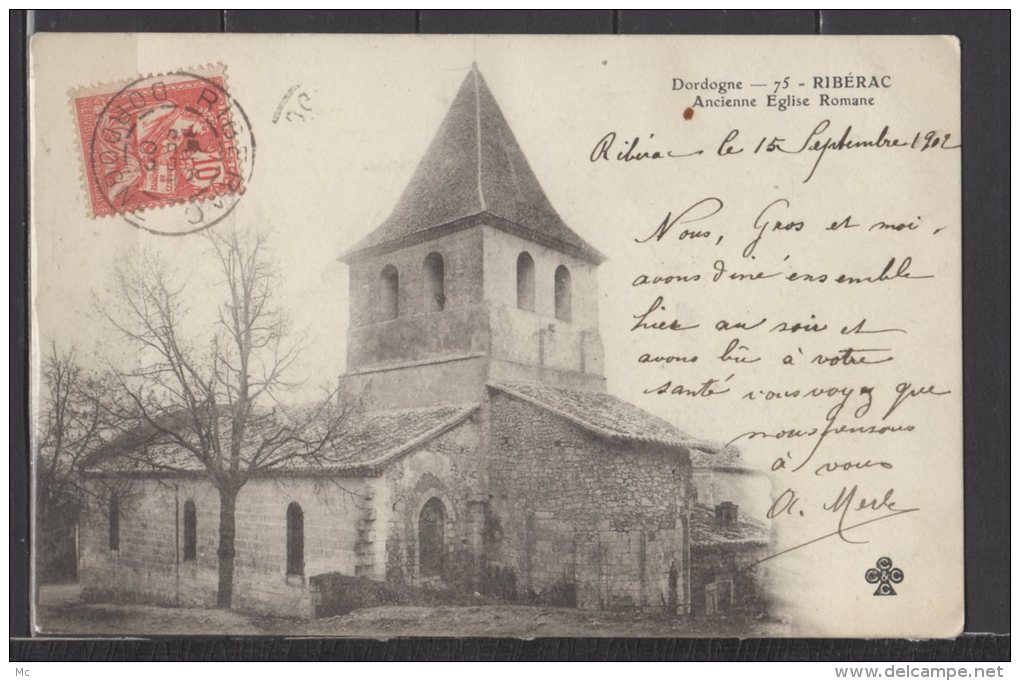 Dordogne — 75 - RIBÉRAC
Ancienne Eglise Romane
Ribérac le 15 Septembre 1902
Nous, Gros et moi,
avons diné ensemble
hier au soir et
avons bû à votre
santé vous voyez que
nous pensons
à vous
A. Merle
RIBERAC
DORDOGNE
10
C
C & C
C
Mc
http://www.delcampe.net